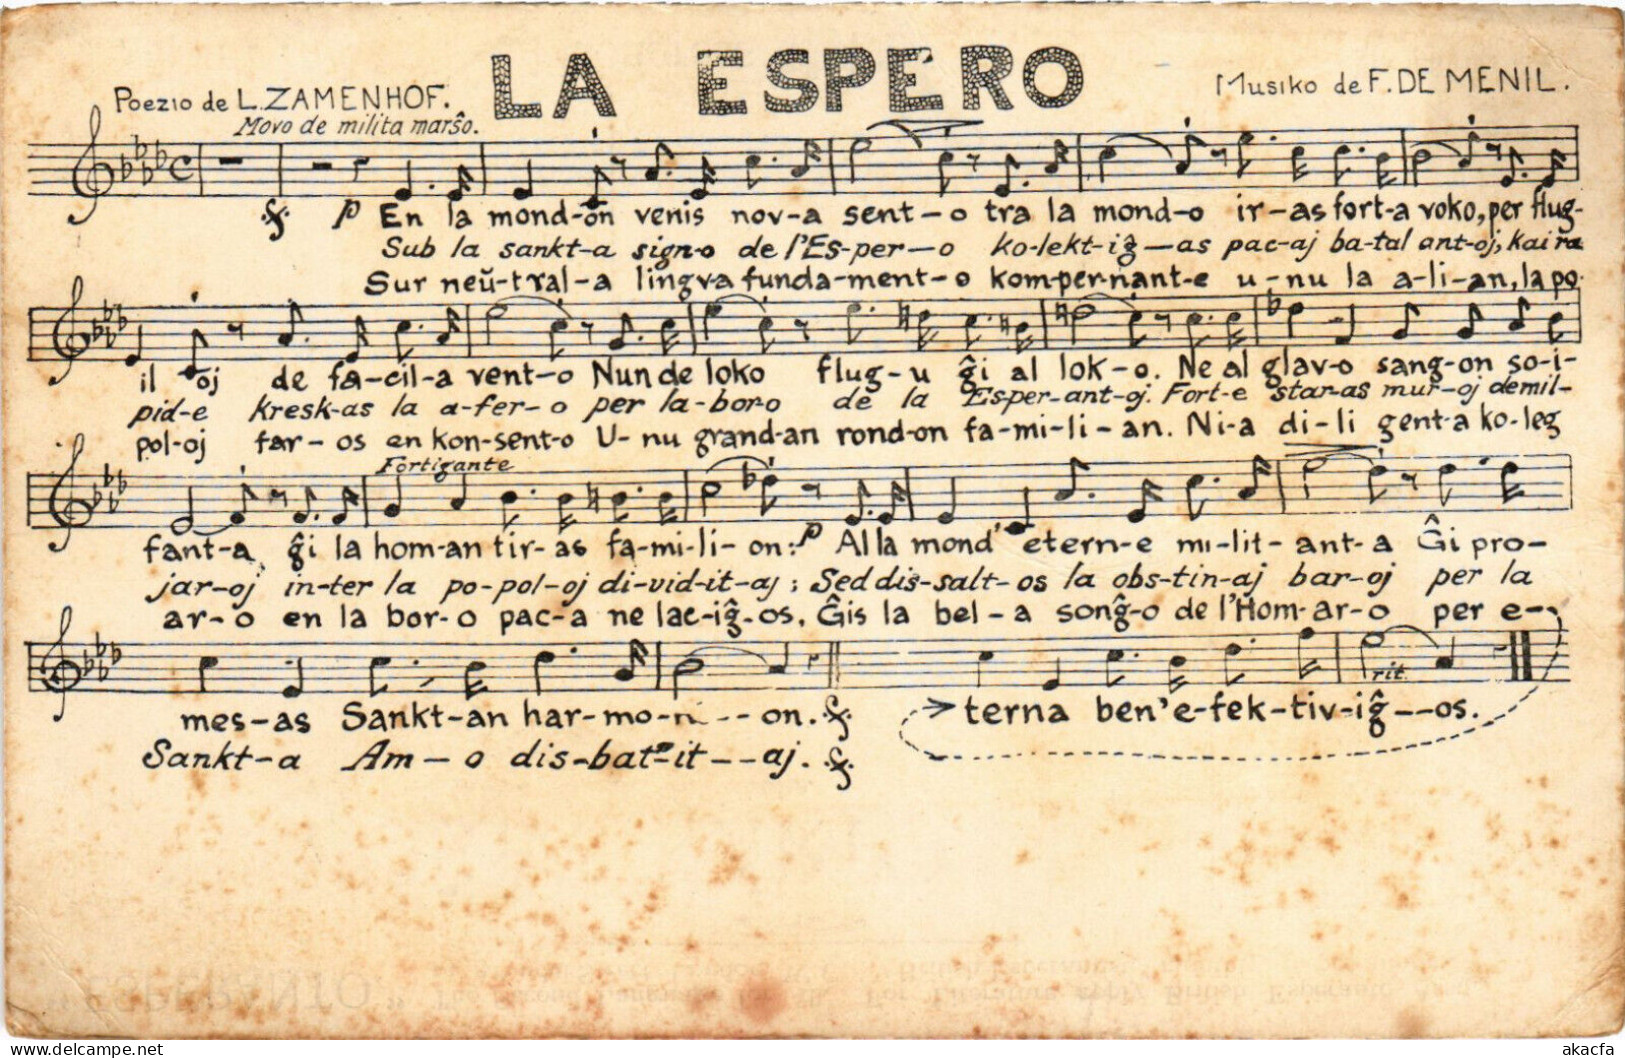 LA ESPERO
Poezio de L. ZAMENHOF.
Musiko de F. DE MENIL.
Movo de milita marŝo.
p En la mond-on venis nov-a sent-o tra la mond-o ir-as fort-a voko, per flug-
Sub la sankt-a sign-o de l'Es-per-o ko-lekt-iĝ-as pac-aj ba-tal ant-oj, kai ra
Sur neŭ-tral-a lingv-a funda-ment-o kom-per-nant-e u-nu la a-li-an, la po-
il oj de fa-cil-a vent-o Nun de loko flug-u ĝi al lok-o. Ne al glav-o sang-on so-i-
pid-e kresk-as la a-fer-o per la-bor-o de la Es-per-ant-oj. Fort-e star-as mur-oj de mil-
pol-oj far-os en kon-sent-o U-nu grand-an rond-on fa-mi-li-an. Ni-a di-li gent-a ko-leg
Fortigante
fant-a ĝi la hom-an tir-as fa-mi-li-on: p Al la mond' etern-e mi-lit-ant-a Ĝi pro-
jar-oj in-ter la po-pol-oj di-vid-it-aj; Sed dis-salt-os la obs-tin-aj bar-oj per la
ar-o en la bor-o pac-a ne lac-iĝ-os, Ĝis la bel-a sonĝ-o de l'Hom-ar-o per e-
rit.
mes-as Sankt-an har-mo-ni--on. terna ben'e-fek-tiv-iĝ--os.
Sankt-a Am-o dis-bat-it--aj.
"ESPERANTO"
akacfa